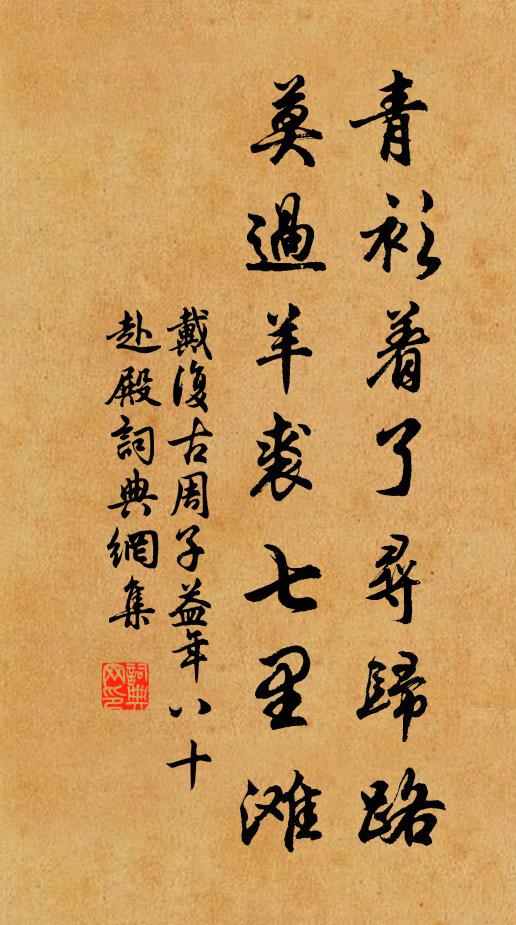 青衫着了尋歸路
莫過羊裘七里滩
戴復古周子益年八十
赴殿詞典網集
詞典网印